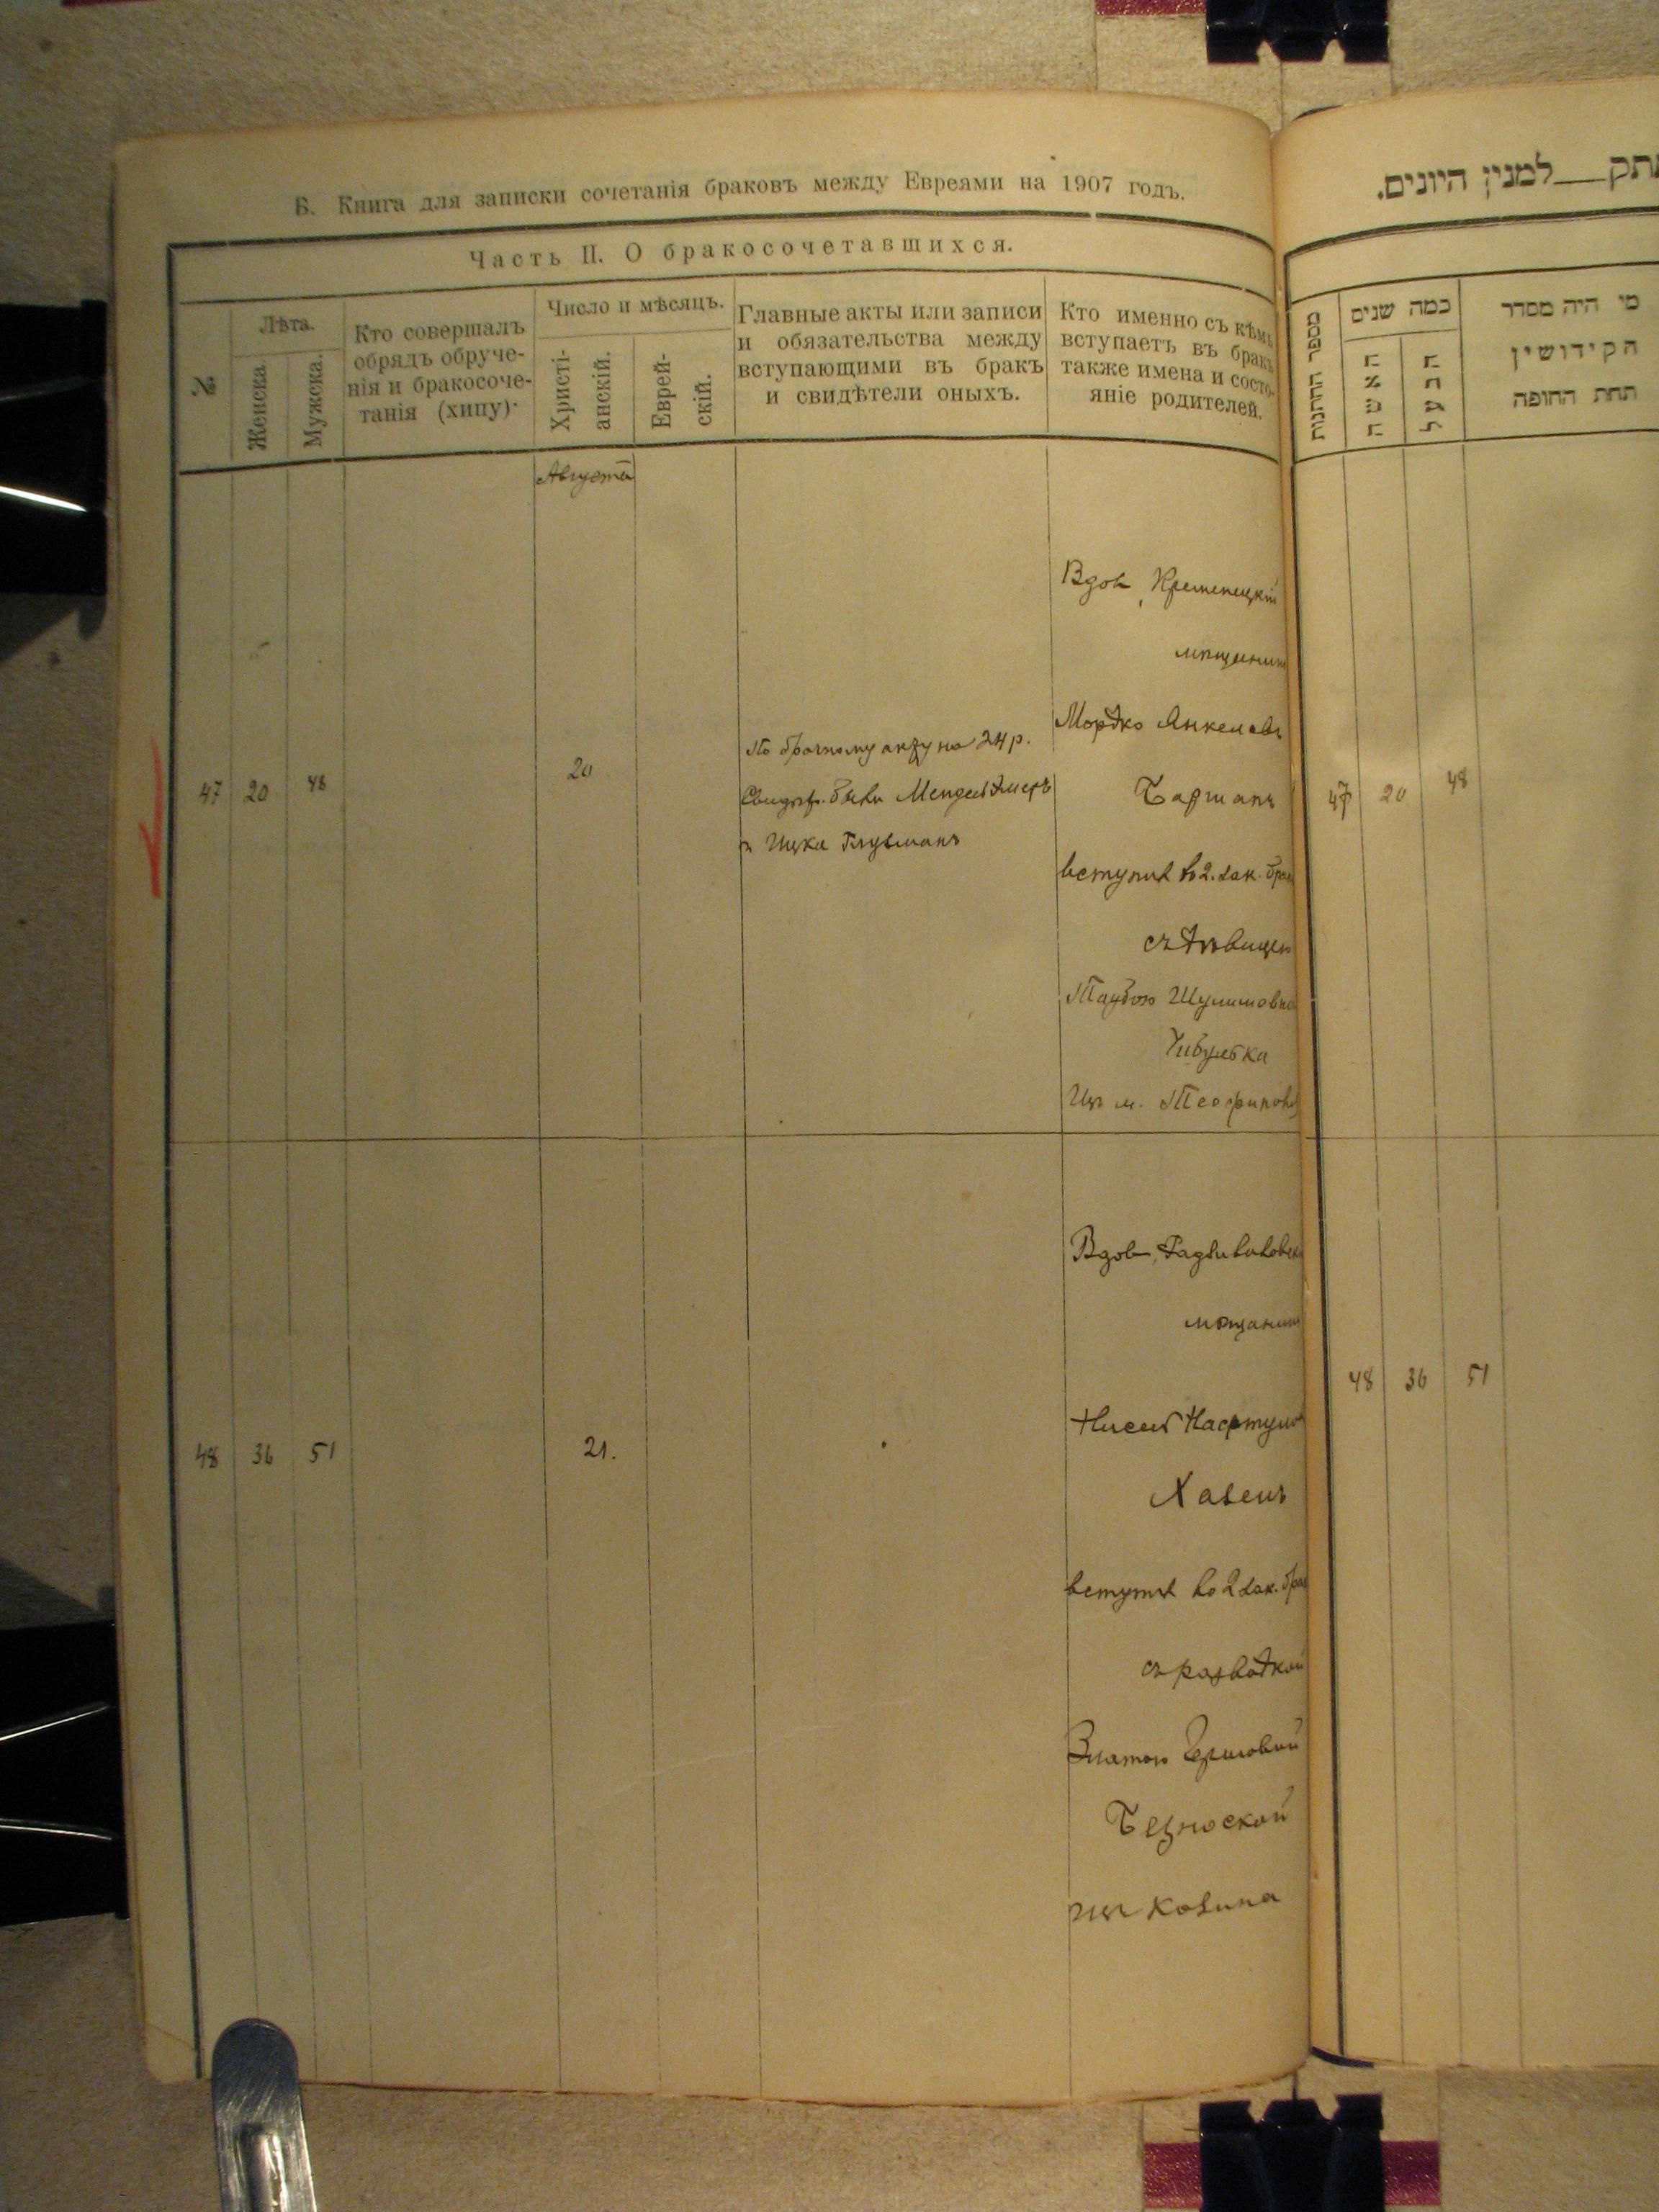 Б. Книга для записки сочетанія браковъ между Евреями на 1907 годъ.
Часть II. О бракосочетавшихся.
№
Лѣта.
Женска.
Мужска.
Кто совершалъ
обрядъ обруче-
нія и бракосоче-
танія (хипу):
Число и мѣсяцъ.
Христі-
анскій.
Еврей-
скій.
Главные акты или записи
и обязательства между
вступающими въ бракъ
и свидѣтели оныхъ.
Кто именно съ кѣмъ
вступаетъ въ бракъ
также имена и состо-
яніе родителей.
Августа
47 20 48
20
По брачному акту на 24 р.
Свидѣт. были Мендель
и Ицко Глузманъ
Вдов. Кременецкій
мѣщанин
Мордко Янкелевъ
вступил во 2. зак. брак
съ дѣвицею
Таубою
Изъ м. Теофиполь
48 36 51
21.
Вдов. Радзивиловск
мѣщанин
Нисель Нафтул
вступил во 2 зак. брак
съ разводкой
Златою Гершовой
изъ Ковна
למנין היונים.
מספר החתנות
כמה שנים
האשה
הבעל
מי היה מסדר
הקידושין
תחת החופה
47 20 48
48 36 51